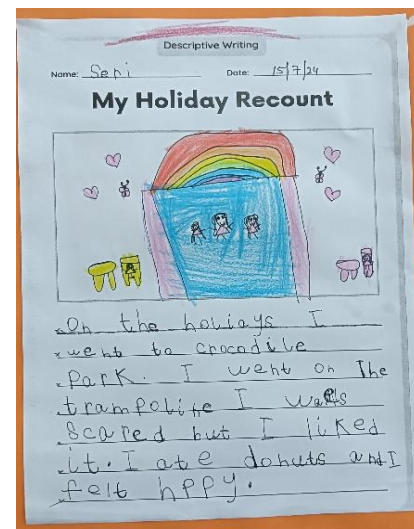 Descriptive Writing
Name: Seni Date: 15/7/24
My Holiday Recount
On the houiays I
went to crocodile
Park. I went on The
trampoline I was
Scared but I liked
it. I ate donuts and I
felt hppy.